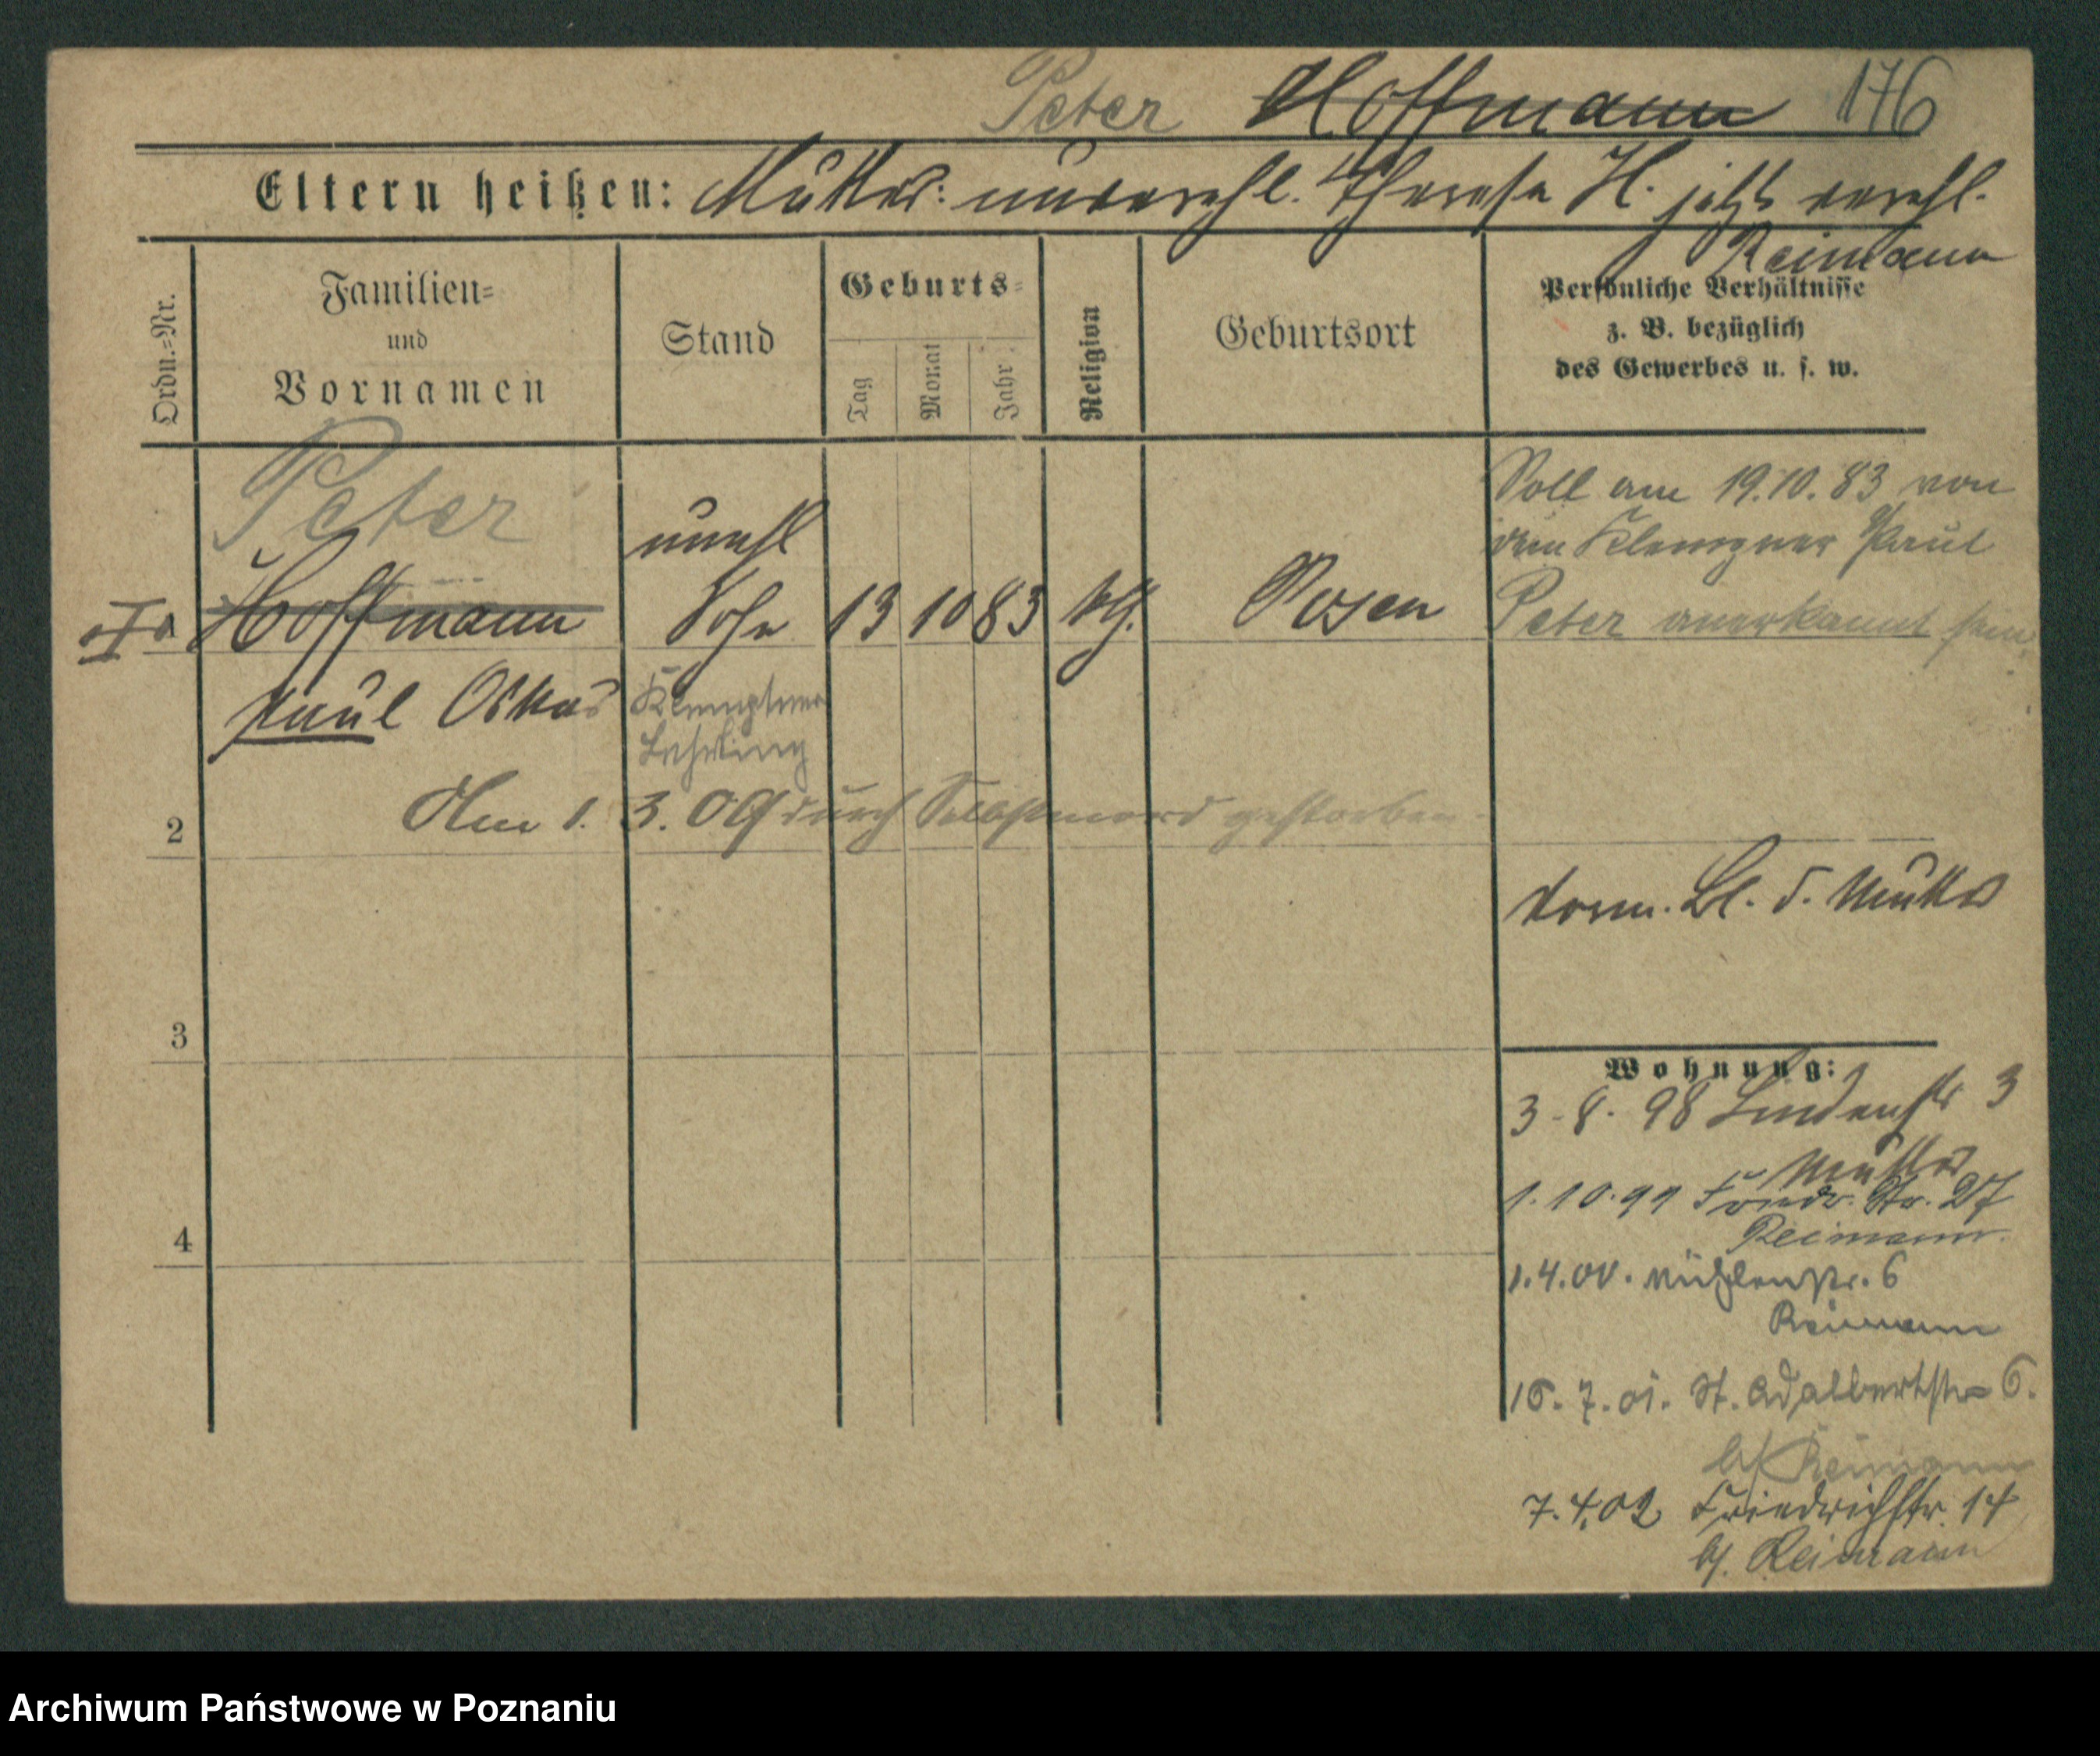 Peter Hoffmann 176
Eltern heißen: Mutter: unverehl. Therese H. jetzt verehl.
Reimann
Ordn.=Nr.
Familien=
und
Vornamen
Stand
Geburts=
Tag
Monat
Jahr
Religion
Geburtsort
Persönliche Verhältnisse
z. B. bezüglich
des Gewerbes u. s. w.
Peter
Hoffmann
Paul Oskar
unehl
Sohn
13 10 83
Posen
Klemptner
Lehrling
Soll am 19.10.83 von
dem Klempner Paul
Peter anerkannt sein
2
Am 1. 3. 09 durch Selbstmord gestorben
Bl. d. Mutter
3
Wohnung:
3-8. 98 Lindenstr 3
Mutter
1.10.99 Friedr. Str. 27
Reimann
4
1.4.00. Mühlenstr. 6
Reimann
16.7.01. St. Adalbertstr 6.
b/ Reimann
7.4.02 Friedrichstr. 14
b/. Reimann
Archiwum Państwowe w Poznaniu